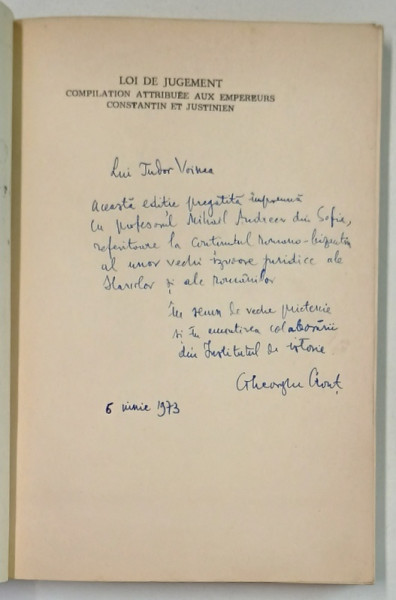 LOI DE JUGEMENT
COMPILATION ATTRIBUÉE AUX EMPEREURS
CONSTANTIN ET JUSTINIEN
Lui Tudor Voinea
această ediție pregătită împreună
cu profesorul Mihail Andreev din Sofia,
referitoare la conținutul romano-bizantin
al unor vechi izvoare juridice ale
slavilor și ale românilor
În semn de veche prietenie
și în amintirea colaborării
din Institutul de istorie
Gheorghe Cronț
6 iunie 1973